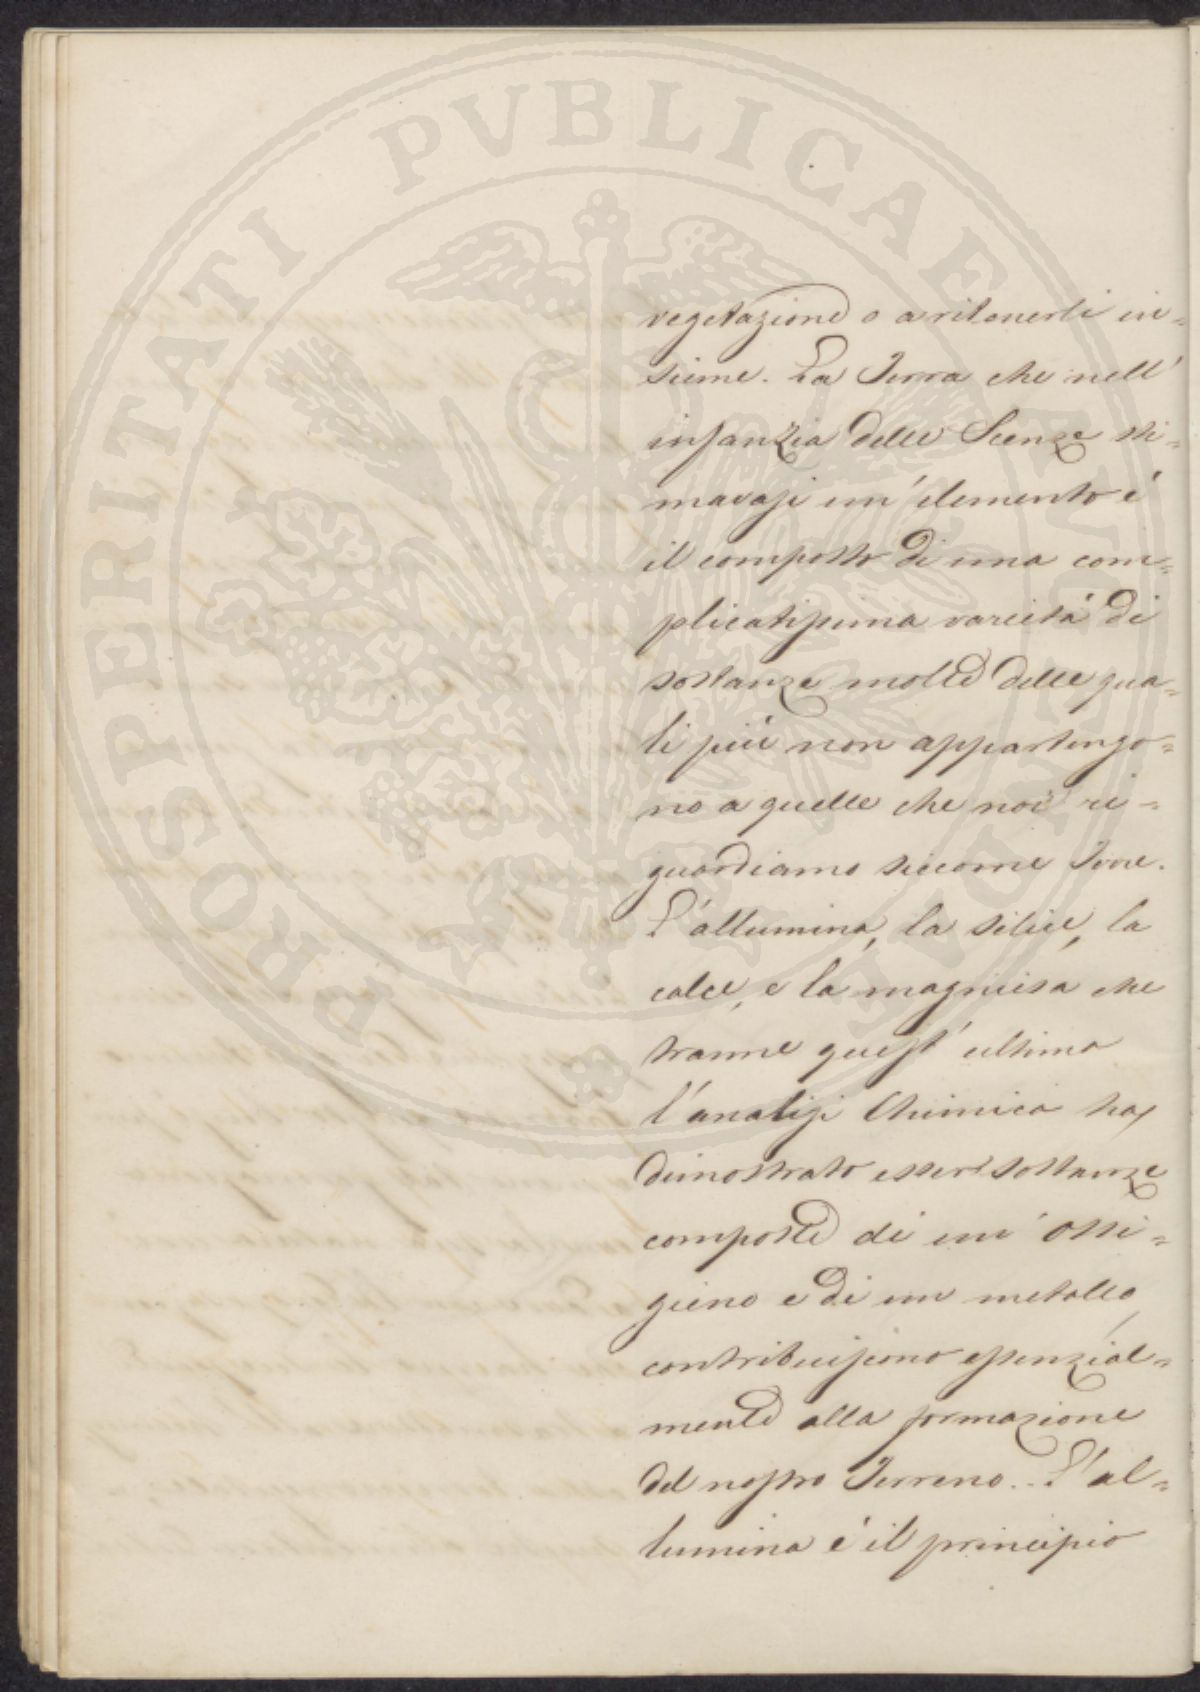 PROSPERITATI PVBLICAE AVGENDAE
vegetazione o a ritenerli in=
sieme. La Terra che nell'
infanzia delle Scenze sti=
mavasi un'elemento é
il composto di una com=
plicatissima varietá di
sostanze molte delle qua=
li piú non appartengo=
no a quelle che noi ri=
guardiamo siccome Terre.
L'allumina, la silice, la
calce, e la magniesa che
tranne quest'ultima
l'analisi Chimica ha
dimostrato essere sostanze
composte di un'ossi=
gieno e di un metallo,
contribuiscono essenzial=
mente alla formazione
del nostro Terreno.. L'al=
lumina é il principio